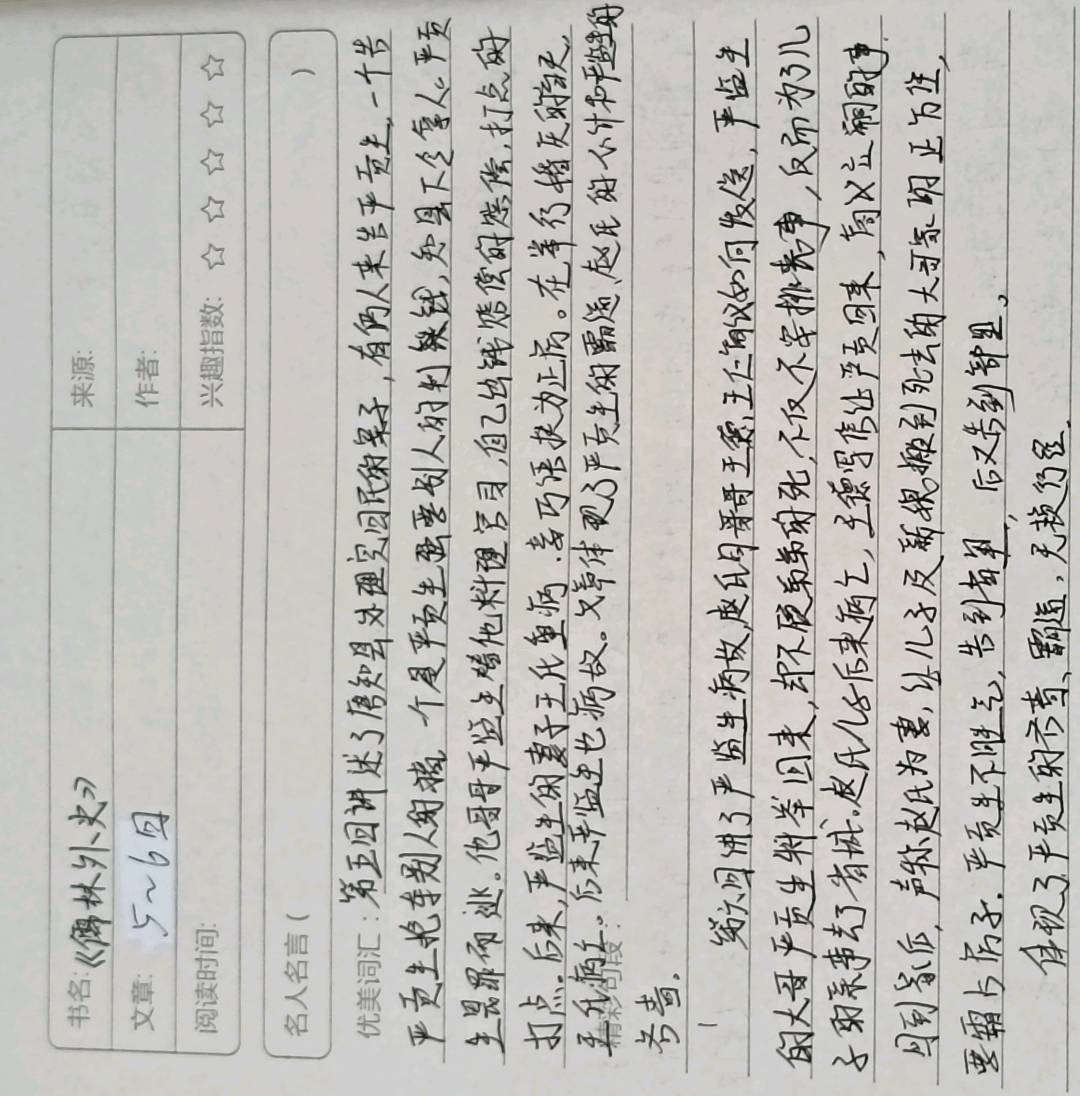 书名:《儒林外史》 来源:
文章: 5~6回 作者:
阅读时间: 兴趣指数: ☆ ☆ ☆ ☆ ☆
名人名言 ( )
优美词汇: 第五回讲述了唐知县办理完回民的案子,有两人来告严贡生,一个告
严贡生抢车别人的猪,个是严贡生要别人的利钱,知县下令拿人。严贡
生畏罪而逃。他哥哥严监生替他料理官司,自己出钱赔偿的赔偿,打点的
打点。后来,严监生的妻子王氏重病,亲巧语扶为正房。在举行的当天,
王氏病亡。后来严监生也病故。文章体现了严贡生的霸道,赵氏的心计和严监生的
精彩句段:
吝啬。
第六回讲了严监生病故,赵氏同哥哥王德、王仁商议如何发送,严监生
的大哥严贡生科举回来,却不顾弟弟的死,不仅不安排丧事,反而为了儿
子的亲事去了省城。赵氏儿子后来病亡,王德写信让严贡回来,商议立嗣的事
回到省后,声称赵氏为妾,让儿子及新媳搬到死去的大哥家的正房住,
要霸占房子。严贡生不胜气,告到省里,后又告到部里。
体现了严贡生的吝啬、霸道,无赖行径。